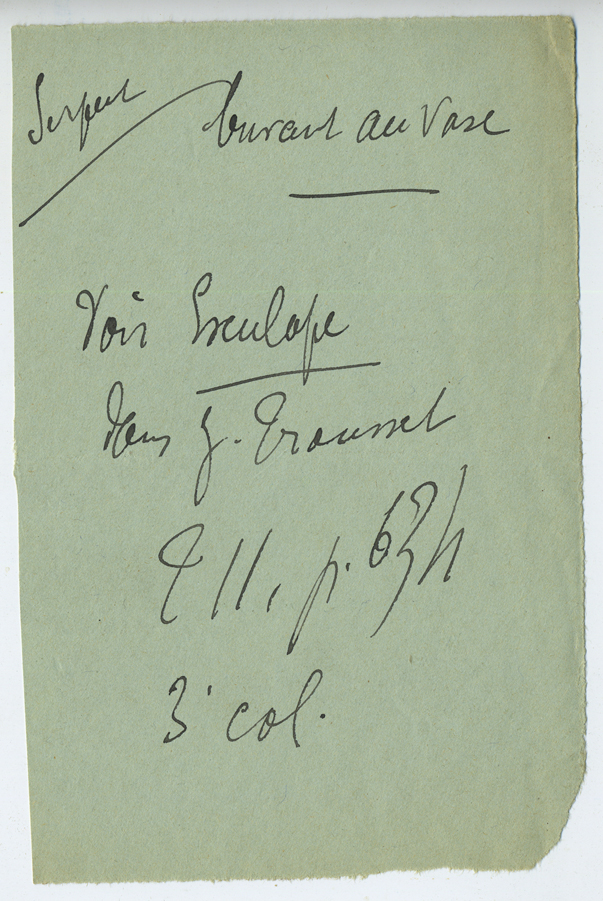 Serpent buvant au vase
Voir Esculape
dans J. Trousset
T II, p. 634
3e col.